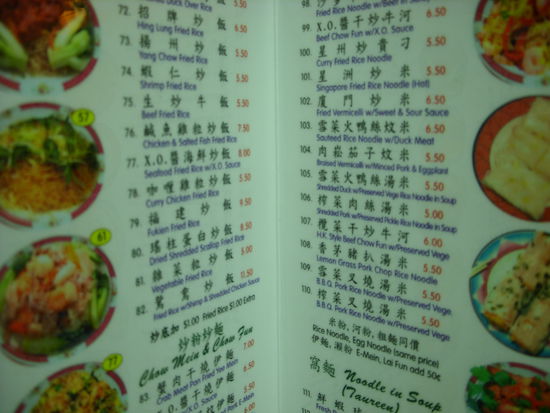 Duck Over Rice
72. 招牌炒飯 6.50
Hing Lung Fried Rice
73. 揚州炒飯 5.50
Yang Chow Fried Rice
74. 蝦仁炒飯 6.50
Shrimp Fried Rice
75. 生炒牛飯 5.50
Beef Fried Rice
76. 鹹魚雞粒炒飯 7.50
Chicken & Salted Fish Fried Rice
77. X.O.醬海鮮炒飯 8.00
Seafood Fried Rice w/X.O. Sauce
78. 咖喱雞粒炒飯 6.50
Curry Chicken Fried Rice
79. 福建炒飯 6.50
Fukien Fried Rice
80. 瑤柱蛋白炒飯
Dried Shredded Scallop Fried Rice
81. 雜菜粒炒飯 5.00
Vegetable Fried Rice
82. 鴛鴦炒飯 11.50
Fried Rice w/Shrimp & Shredded Chicken Sauce
炒底加 $1.00 Fried Rice $1.00 Extra
炒粉炒麵
Chow Mein & Chow Fun
83. 蟹肉干燒伊麵 7.00
Crab Meat Pan Fried Yee Mein
X.O.醬干燒伊麵 6.00
57
61
77
98.
Fried Rice Noodle w/Beef in
99. X.O.醬干炒牛河 6.50
Beef Chow Fun w/X.O. Sauce
100. 星州炒貴刁 5.50
Curry Fried Rice Noodle
101. 星洲炒米 5.50
Singapore Fried Rice Noodle (Hot)
102. 廈門炒米 6.50
Fried Vermicelli w/Sweet & Sour Sauce
103. 雪菜火鴨絲炆米 6.50
Sauteed Rice Noodle w/Duck Meat
104. 肉崧茄子炆米 5.50
Braised Vermicelli w/Minced Pork & Eggplant
105. 雪菜火鴨絲湯米 5.50
Shredded Duck w/Preserved Vege Rice Noodle in Soup
106. 榨菜肉絲湯米 5.50
Shredded Pork w/Preserved Pickle Rice Noodle in Soup
107. 欖菜干炒牛河 6.00
H.K. Style Beef Chow Fun w/Preserved Vege
108. 香茅豬扒湯米 5.50
Lemon Grass Pork Chop Rice Noodle
109. 雪菜叉燒湯米 5.50
B.B.Q. Pork Rice Noodle w/Preserved Vege
110. 榨菜叉燒湯米 5.50
B.B.Q. Pork Rice Noodle w/Preserved Vege.
米粉, 河粉, 粗麵同價
Rice Noodle, Egg Noodle (same price)
伊麵, 瀨粉 E-Mein, Lai Fun add 50¢
窩麵 Noodle in Soup
(Taureen)
111. 鮮蝦